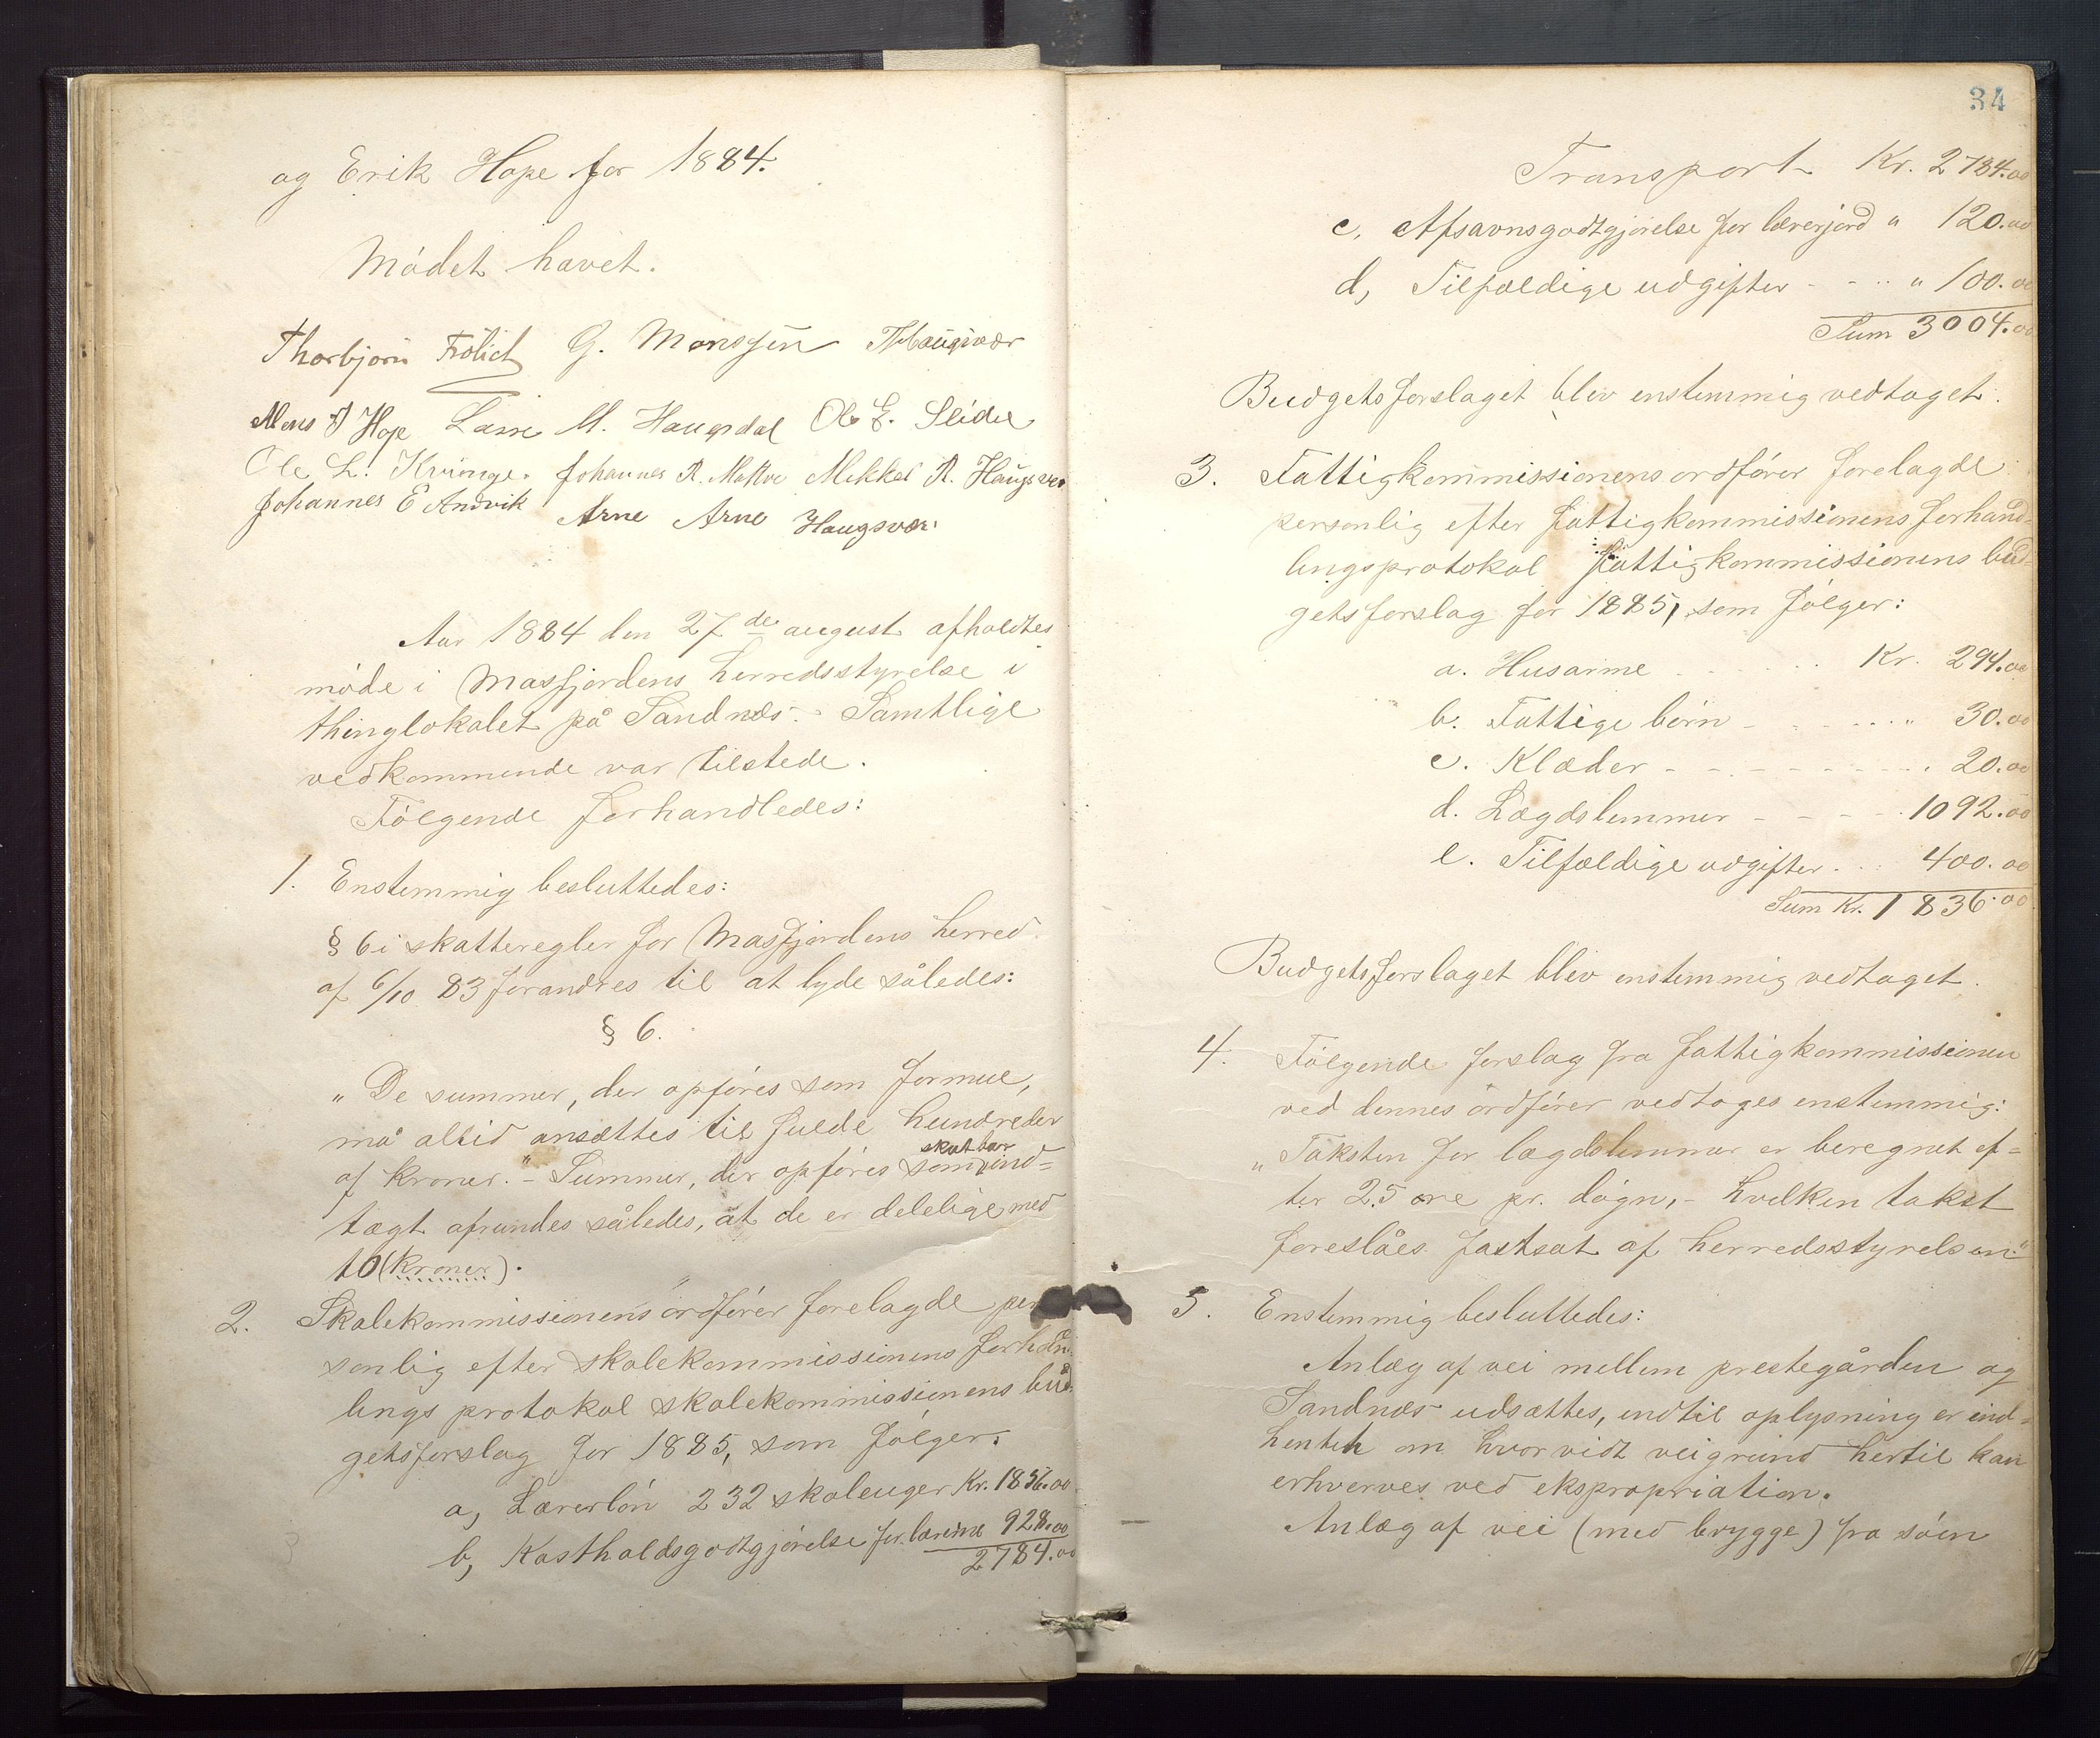 og Erik Hope for 1884.
Mödet hævet.
Thorbjørn Frölich G. Monssen
Mons A Hope Lasse M. Haugsdal Ole E. Sleide
Ole L. Kvinge. Johannes R. Matre Mikkal R. Haugsvær
Johannes E Andvik Arne Arne Haugsvær
Aar 1884 den 27de august afholdtes
möde i Masfjordens herredsstyrelse i
thinglokalet på Sandnæs. - Samtlige
vedkommende var tilstede.
Fölgende forhandledes:
1. Enstemmig besluttedes:
§ 6 i skatteregler for Masfjordens herred
af 6/10 83 forandres til at lyde således:
§ 6.
„De summer, der opföres som formue,
må altid ansættes til fulde hundreder
af kroner." - Summer, der opföres som skatbar ind=
tægt afrundes således, at de er delelige med
10 (kroner).
2. Skolekommissionens ordförer forelagde per
sonlig efter skolekommissionens forhand
lingsprotokol skolekommissionens bud
getsforslag for 1885, som fölger:
a, Lærerlön 232 skoleuger Kr. 1856.00
b, Kostholdsgodtgjörelse for lærerne 928.00
2784.00
34
Transport Kr. 2784.00
c. Afsavnsgodtgjörelse for lærerjord " 120.00
d, Tilfældige udgifter - - .. " 100.00
Sum 3004.00
Budgetsforslaget blev enstemmig vedtaget.
3. Fattigkommissionens ordförer forelagde
personlig efter fattigkommissionens forhand=
lingsprotokol fattigkommissionens bud=
getsforslag for 1885, som fölger:
a. Husarme . . . . . . Kr. 294.00
b. Fattige börn - . . . . . " 30.00
c. Klæder - - - - - - - - - . 20.00
d. Lægdslemmer - - - - . 1092.00
e. Tilfældige udgifter . . . 400.00
Sum Kr. 1836.00
Budgetsforslaget blev enstemmig vedtaget.
4. Fölgende forslag fra fattigkommissionen
ved dennes ordförer vedtoges enstemmig:
„Taksten for lægdslemmer er beregnet ef=
ter 25 øre pr. dögn, - hvilken takst
foreslåes fastsat af herredsstyrelsen."
5. Enstemmig besluttedes:
Anlæg af vei mellem prestegården og
Sandnæs udsættes, indtil oplysning er ind=
hentet om hvorvidt veigrund hertil kan
erhverves ved ekspropriation.
Anlæg af vei (med brygge) fra söen